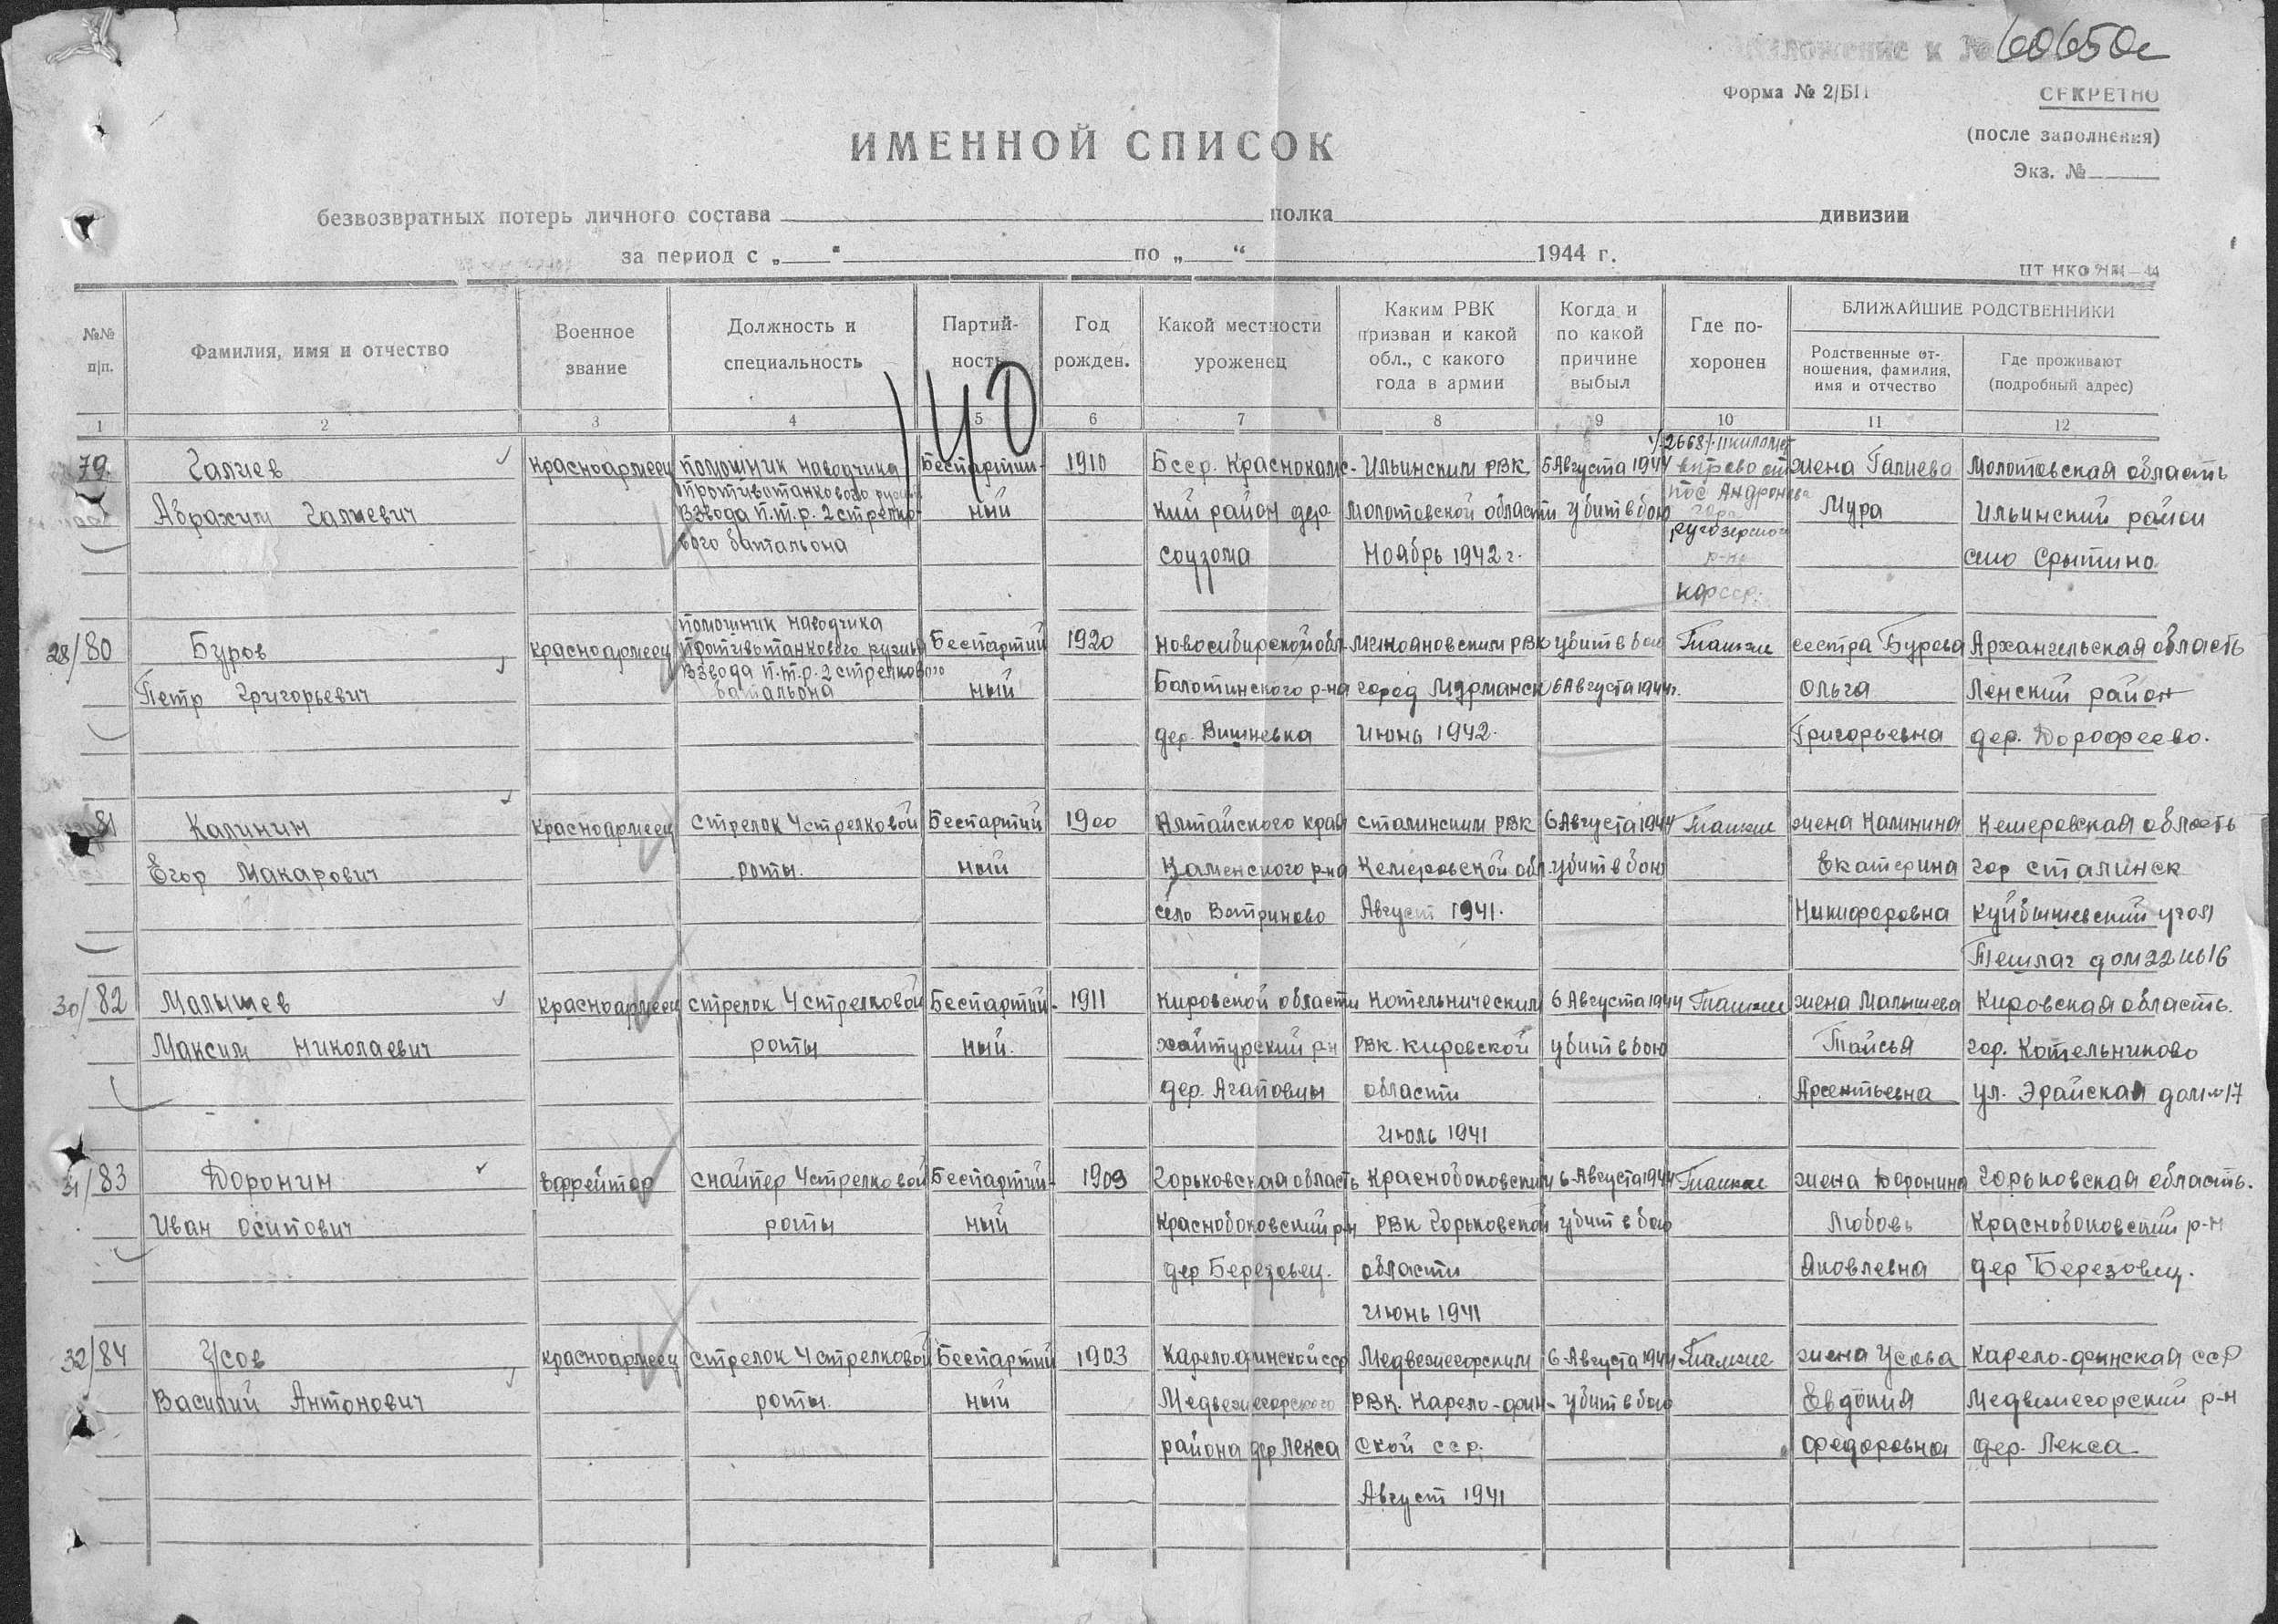 Приложение к № 60650с
Форма № 2/БП
СЕКРЕТНО
(после заполнения)
Экз. №
ИМЕННОЙ СПИСОК
безвозвратных потерь личного состава полка дивизии
за период с „ “ по „ “ 1944 г.
№№ п|п.
Фамилия, имя и отчество
Военное звание
Должность и специальность
Партий-ность
Год рожден.
Какой местности уроженец
Каким РВК призван и какой обл., с какого года в армии
Когда и по какой причине выбыл
Где по-хоронен
БЛИЖАЙШИЕ РОДСТВЕННИКИ
Родственные от-ношения, фамилия, имя и отчество
Где проживают (подробный адрес)
1 2 3 4 5 6 7 8 9 10 11 12
140
79.
Галиев
Аврахим Галиевич
Красноармеец
помошник наводчика
противотанкового
взвода п.т.р. 2 стрелко-
вого батальона
Беспартий-
ный
1910
Бсср. Краснокамс-
кий район дер.
Ильинским РВК
Молотовской области
Ноябрь 1942 г.
5 Августа 1944
убит в бою
вправо от
пос Андронова
гора
ругозерского
р-на
КФССР.
жена Галиева
Мура
Молотовская область
Ильинский район
село Срытино
28/80
Буров
Петр Григорьевич
Красноармеец
помошник наводчика
противотанкового ружия
взвода п.т.р. 2 стрелкового
батальона
Беспартий
ный
1920
Новосибирской обл.
Болотинского р-на
дер. Вишневка
РВК
город Мурманск
Июнь 1942.
убит в бою
6 Августа 1944г.
Также
сестра Бурова
Ольга
Григорьевна
Архангельская область
Ленский район
дер. Дорофеево.
81
Калинин
Егор Макарович
Красноармеец
стрелок 4 стрелковой
роты.
Беспартий
ный
1900
Алтайского края
Каменского р-на
село Ветриново
Сталинским РВК
Кемеровской обл.
Август 1941.
6 Августа 1944
убит в бою
Также
жена Калинина
Екатерина
Никифоровна
Кемеровская область
гор Сталинск
Куйбышевский
дом 22 кв 16
30/82
Малышев
Максим Николаевич
Красноармеец
стрелок 4 стрелковой
роты
Беспартий-
ный.
1911
Кировской области
р-н
дер. Агаповцы
Котельническим
РВК. Кировской
области
Июль 1941
6 Августа 1944
убит в бою
Также
жена Малышева
Тайсья
Арсентьевна
Кировская область.
гор. Котельниково
ул. Эрайская дом № 17
31/83
Доронин
Иван Осипович
Ефрейтор
снайпер 4 стрелковой
роты
Беспартий-
ный
1909
Горьковская область
Краснобоковский р-н
дер Березовец.
Краснобоковским
РВК Горьковской
области
Июнь 1941
6 Августа 1944
убит в бою
Также
жена Доронина
Любовь
Яковлевна
Горьковская область.
Краснобоковский р-н
дер Березовец.
32/84
Усов
Василий Антонович
Красноармеец
стрелок 4 стрелковой
роты.
Беспартий
ный
1903
Карело-финской сср
Медвежегорского
района дер Лекса
Медвежегорским
РВК. Карело-фин-
ской сср.
Август 1941
6 Августа 1944
убит в бою
Также
жена Усова
Евдокия
Федоровна
Карело-финская ССР
Медвежегорский р-н
дер. Лекса